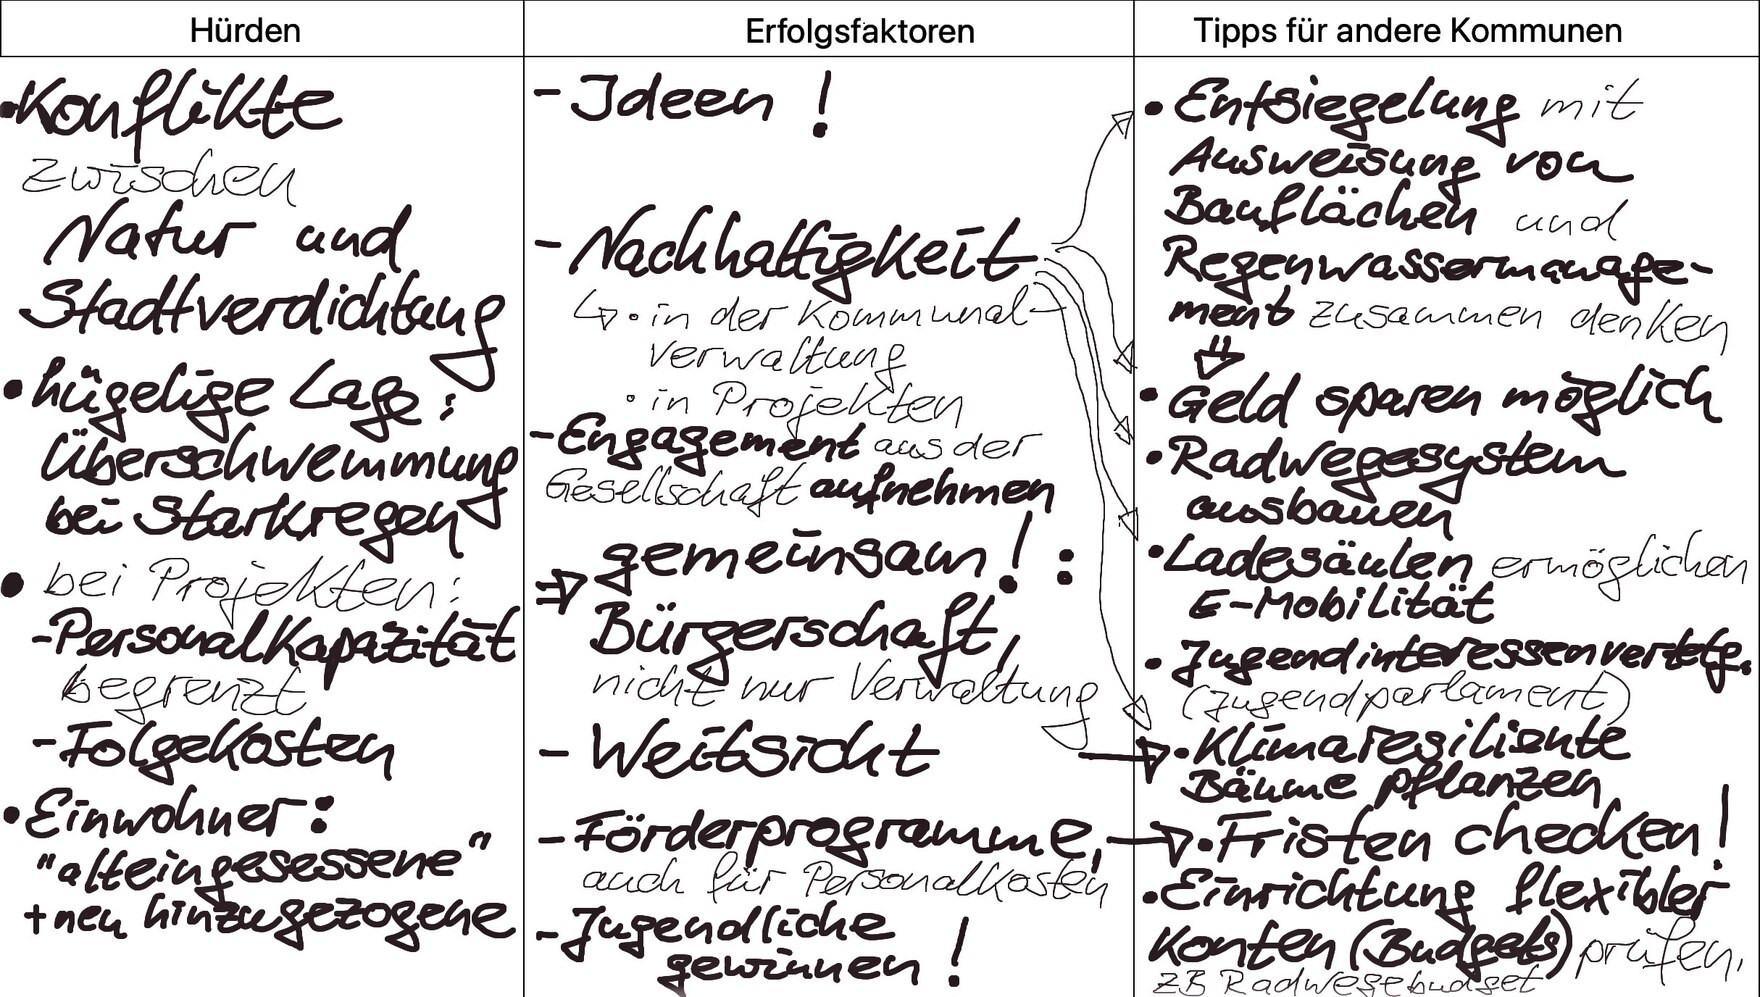 Hürden
• Konflikte
zwischen
Natur und
Stadtverdichtung
• hügelige Lage:
Überschwemmung
bei Starkregen
• bei Projekten:
- Personalkapazität
begrenzt
- Folgekosten
• Einwohner:
"alteingesessene"
+ neu hinzugezogene
Erfolgsfaktoren
- Ideen!
- Nachhaltigkeit
↳ • in der Kommunal-
verwaltung
• in Projekten
- Engagement aus der
Gesellschaft aufnehmen
⇒ gemeinsam!:
Bürgerschaft,
nicht nur Verwaltung
- Weitsicht
- Förderprogramme,
auch für Personalkosten
- Jugendliche
gewinnen!
Tipps für andere Kommunen
• Entsiegelung mit
Ausweisung von
Bauflächen und
Regenwassermanage-
ment zusammen denken
⇓
• Geld sparen möglich
• Radwegesystem
ausbauen
• Ladesäulen ermöglichen
E-Mobilität
• Jugendinteressenvertretg.
(Jugendparlament)
• Klimaresiliente
Bäume pflanzen
• Fristen checken!
• Einrichtung flexibler
Konten (Budgets) prüfen,
zB Radwegebudget